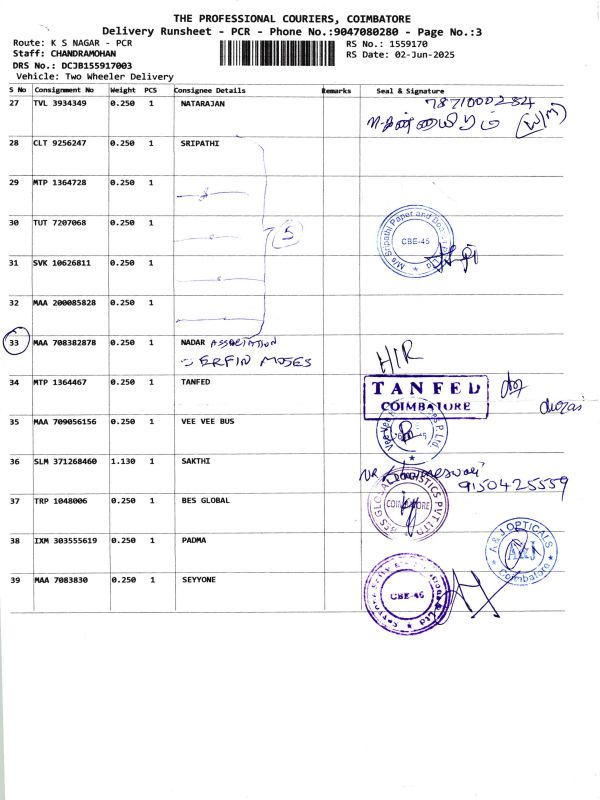 THE PROFESSIONAL COURIERS, COIMBATORE
Delivery Runsheet - PCR - Phone No.:9047080280 - Page No.:3
Route: K S NAGAR - PCR
Staff: CHANDRAMOHAN
DRS No.: DCJB155917003
Vehicle: Two Wheeler Delivery
RS No.: 1559170
RS Date: 02-Jun-2025
S No Consignment No Weight PCS Consignee Details Remarks Seal & Signature
27 TVL 3934349 0.250 1 NATARAJAN 7871000284
28 CLT 9256247 0.250 1 SRIPATHI
29 MTP 1364728 0.250 1
30 TUT 7207068 0.250 1 5
M/s Sripathi Paper and CBE-45
31 SVK 10626811 0.250 1
32 MAA 200085828 0.250 1
33 MAA 708382878 0.250 1 NADAR ASSOCIATION
ERFIN MOSES H/R
34 MTP 1364467 0.250 1 TANFED TANFED
COIMBATORE
35 MAA 709056156 0.250 1 VEE VEE BUS
36 SLM 371268460 1.130 1 SAKTHI
9150425559
37 TRP 1048006 0.250 1 BES GLOBAL
BES GLOBAL LOGISTICS PVT LTD COIMBATORE
38 IXM 303555619 0.250 1 PADMA
A & J OPTICALS A&J Coimbatore
39 MAA 7083830 0.250 1 SEYYONE
CBE-45